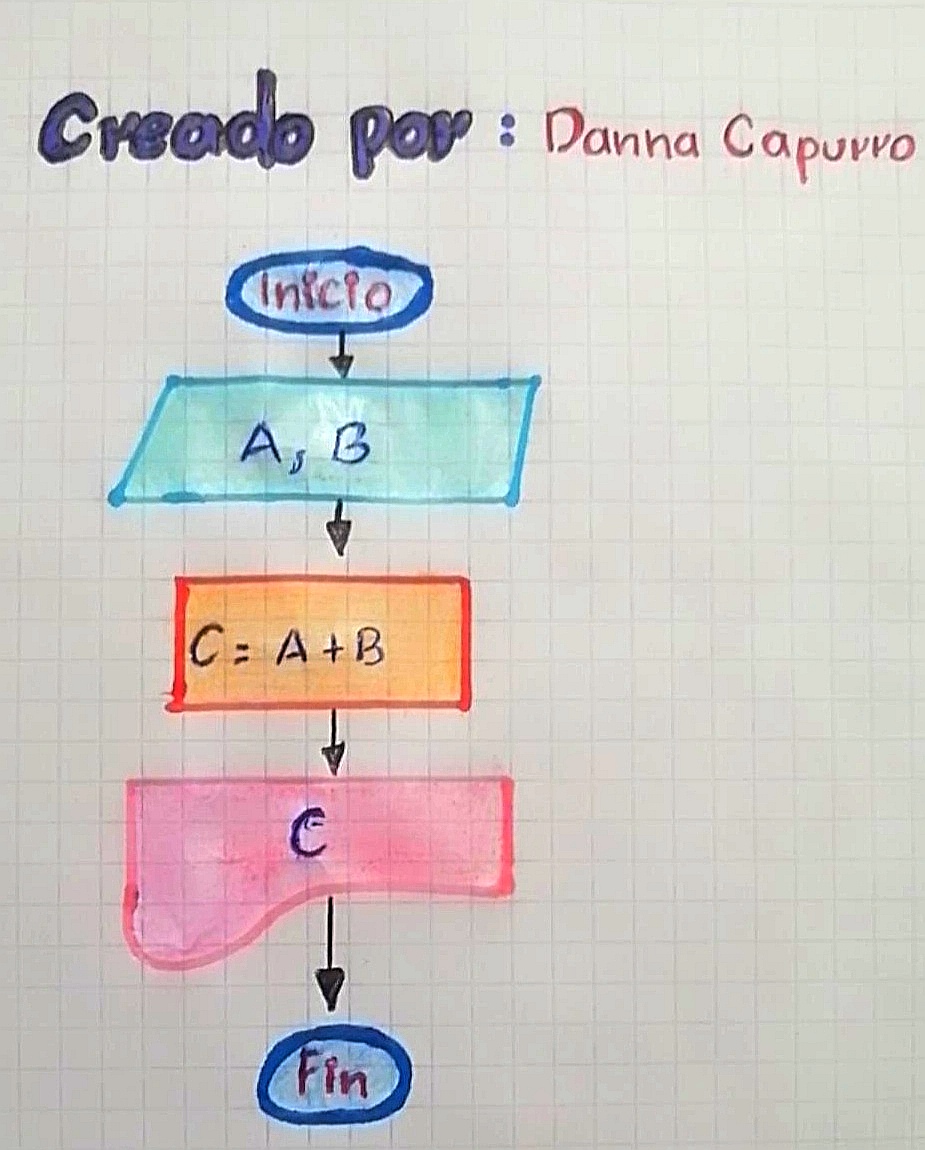 Creado por: Danna Capurro
Inicio
A, B
C = A + B
C
Fin